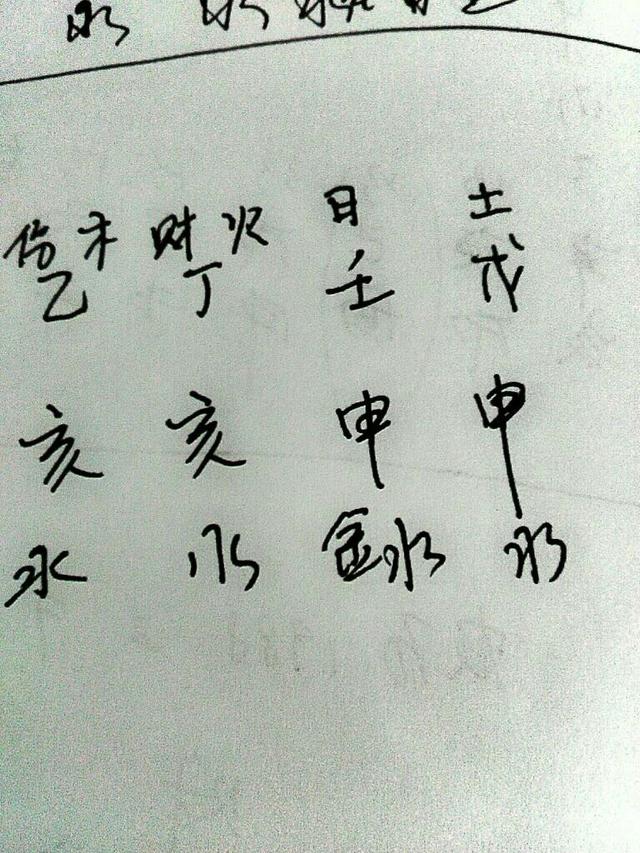 水
伤木 财火 日 土
乙 丁 壬 戊
亥 亥 申 申
水 水 金水 水